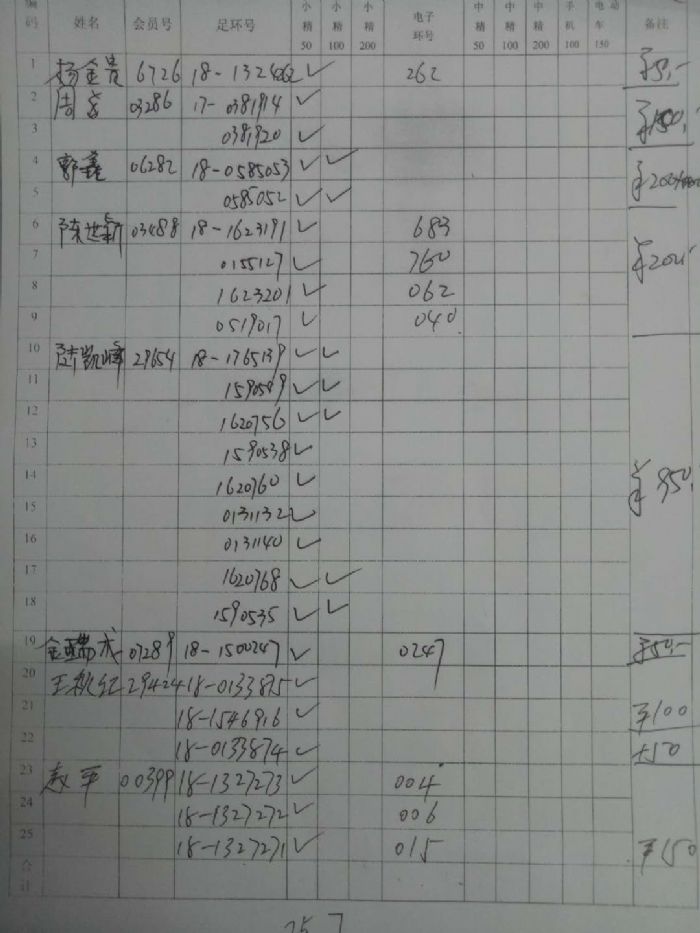 编码 姓名 会员号 足环号 小精50 小精100 小精200 电子环号 中精50 中精100 中精200 手机100 电动车150 备注
1 杨金贵 6726 18-132 ✓ 262 ¥50,-
2 周 03286 17-0381914 ✓
3 0381920 ✓ ¥100,-
4 郭鑫 06282 18-0585053 ✓ ✓
5 0585052 ✓ ✓
6 陈世新 03488 18-1623191 ✓ 683
7 0155127 ✓ 760 ¥200,-
8 1623201 ✓ 062
9 0519017 ✓ 040
10 陆凯峰 29654 18-1765139 ✓ ✓
11 1590549 ✓ ✓
12 1620756 ✓ ✓
13 1590538 ✓
14 1620760 ✓ ¥950,
15 0131132 ✓
16 0131140 ✓
17 1620768 ✓ ✓
18 1590535 ✓ ✓
19 07289 18-1500247 ✓ 0247 ¥50,-
20 29424 18-0133875 ✓
21 18-1546916 ✓ ¥100
22 18-0133874 ✓ +50
23 平 00399 18-1327273 ✓ 004
24 18-1327272 ✓ 006
25 18-1327271 ✓ 015 ¥150
合计
25 7